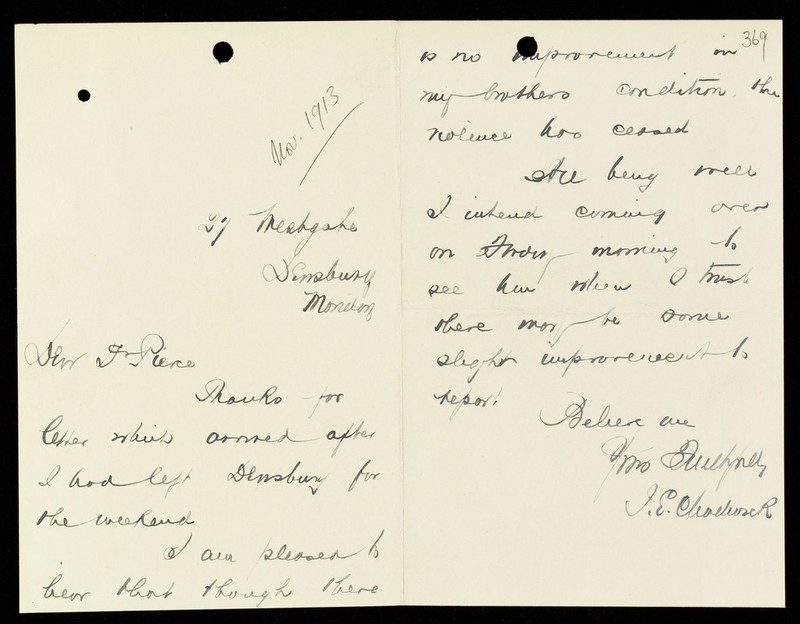 Nov. 1913
27 Westgate
Dewsbury
Monday
Dear Dr Pierce
Thanks for
letter which arrived after
I had left Dewsbury for
the weekend
I am pleased to
hear that though there
369
is no improvement in
my brothers condition, the
violence has ceased
All being well
I intend coming over
on Friday morning to
see him when I trust
there may be some
slight improvement to
report.
Believe me
Yours Faithfully
J. E. Chadwick